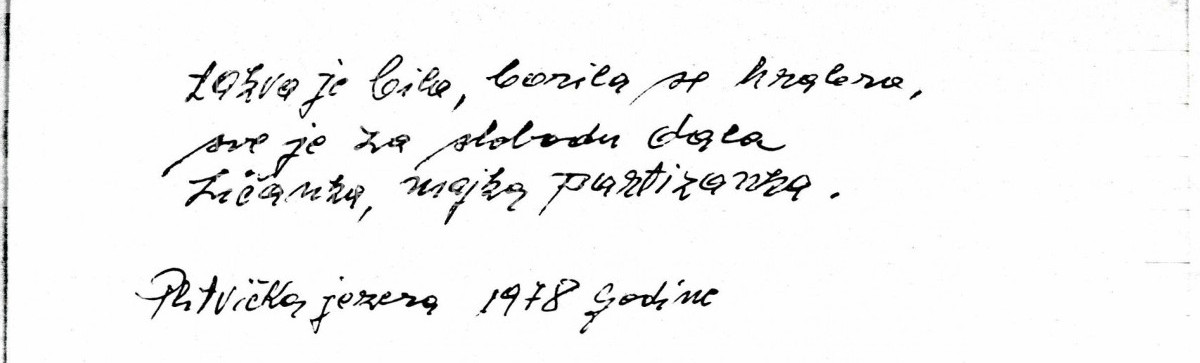 takva je bila, borila se hrabro,
sve je za slobodu dala
Ličanka, majka partizanka.
Plitvička jezera 1978 godine